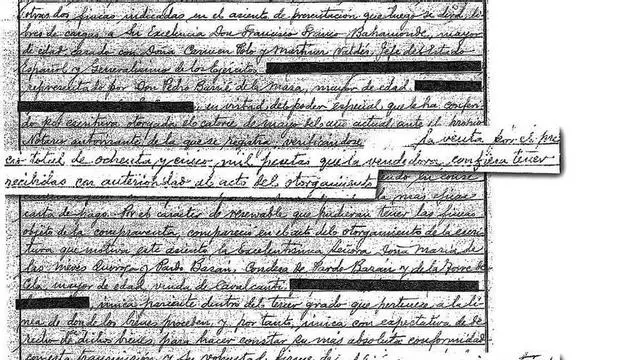 otras dos fincas indicadas en el asiento de presentación que luego se dirá, li-
bres de cargas a Su Excelencia Don Francisco Franco Bahamonde, mayor
de edad, casado con Doña Carmen Polo y Martínez Valdés, Jefe del Estado
Español y Generalísimo de los Ejércitos,
representado por Don Pedro Barrié de la Maza, mayor de edad,
, en virtud del poder especial que le ha conferi-
do por escritura otorgada el catorce de mayo del año actual ante el propio
Notario autorizante de la que se registra, verificándose La venta por el pre-
cio total de ochenta y cinco mil pesetas que la vendedora confiesa tener
recibidas con anterioridad al acto del otorgamiento
en conse-
la más eficaz
carta de pago. Por el carácter de que pudieran tener las fincas
objeto de la compraventa comparece en el acto del otorgamiento de la escri-
tura que motiva este asiento la Excelentísima Señora Doña María de
las Nieves Quiroga y Pardo Bazán, Condesa de Pardo Bazán y de la Torre de
Cela, mayor de edad, viuda de Cavalcanti,
única pariente dentro del tercer grado que pertenece a la lí-
nea de donde los bienes proceden, y por tanto, única con expectativa de de-
recho de dichos bienes, para hacer constar su más absoluta conformidad